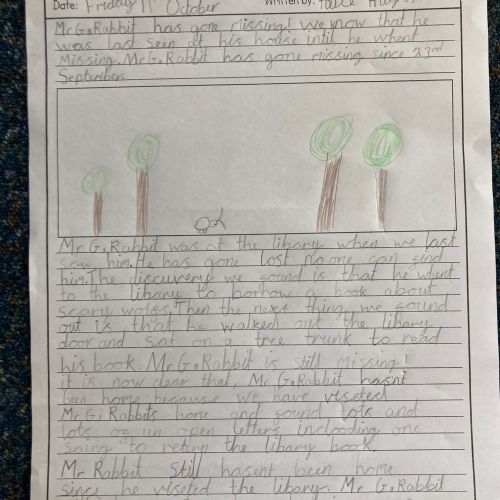 Date: Friday 11 October Written by:
Mr G.Rabbit has gone missing! We know that he
was last seen at his house intil he whent
Missing. Mr G.Rabbit has gone missing since 23rd
September.
Mr G.Rabbit was at the libary when we last
saw him. He has gone lost no one can find
him. The discuvery we found is that he whent
to the libary to borhow a book about
scary wolfs. Then the next thing we found
out is that he walked out the libary
door and sat on a tree trunk to read
his book. Mr G.Rabbit is still missing!
it is now clear that, Mr G.Rabbit hasnt
been home because we have viseted
Mr G.Rabbits home and found lots and
lots of un open letters inclooding one
saing to retern the libary book.
Mr Rabbit still hasent been home
since he viseted the libary. Mr G.Rabbit